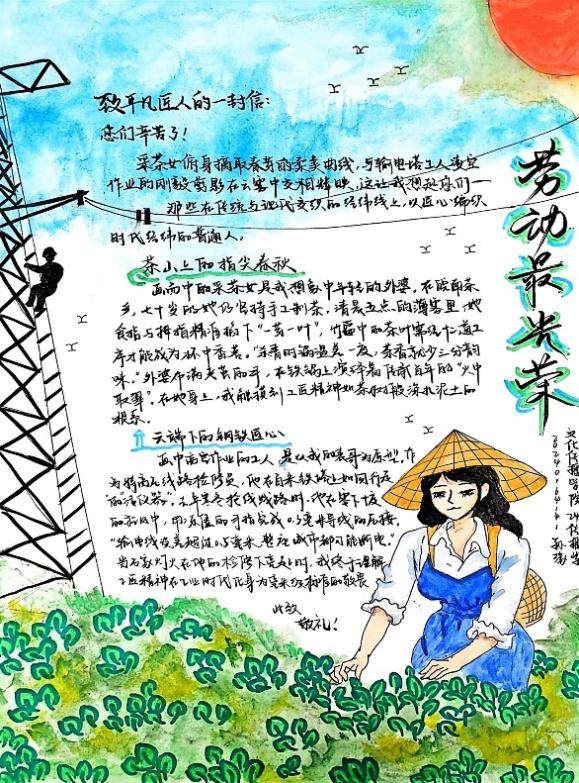 致平凡匠人的一封信:
您们辛苦了!
采茶女俯身摘取春芽的柔美曲线,与输电塔工人凌空
作业的刚毅剪影在云雾中交相辉映,这让我想起你们一
那些在传统与现代交织的经纬线上,以匠心编织
时代经纬的普通人。
茶山上的指尖春秋
画面中的采茶女是我想象中年轻的外婆,在
乡,七十岁的她仍坚持手工制茶,清晨五点的薄雾里,她
食指与拇指精准掐下"一芽一叶",竹篓中的茶叶需经十二道工
序才能成为杯中香茗。"杀青时锅温差一度,茶香就少三分韵
味。"外婆布满老茧的手,在铁锅上演绎着传承百年的"火中
取栗",在她身上,我触摸到工匠精神如茶树般深扎泥土的
根系。
云端下的钢铁匠心
画中高空作业的工人,是以我的表哥为原型,作
为特高压线路检修员,他在百米铁塔上如同行走
的"仪器"。三年寒冬抢修线路时,他在零下
的风中,用的手指完成0.5毫米导线的压接,
"输电线误差超过0.5毫米,整座城市都可能断电。"
当万家灯火在他的检修下亮起时,我终于理解
工匠精神在工业时代化身为毫米级标准的敬畏
此致
敬礼!
劳动最光荣
文化传播学院24传播学